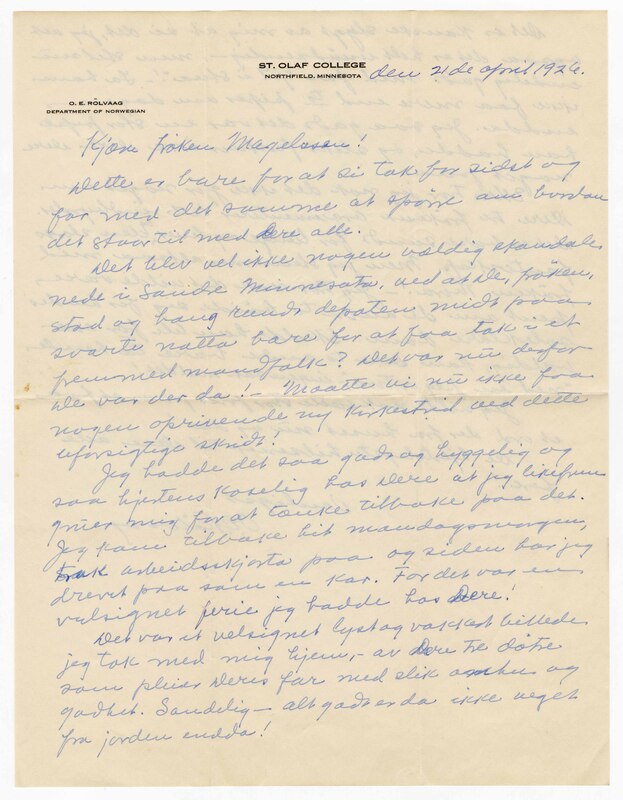 ST. OLAF COLLEGE
NORTHFIELD, MINNESOTA
den 21de april 1926.
O. E. RÖLVAAG
DEPARTMENT OF NORWEGIAN
Kjære frøken Magelssen!
Dette er bare for at si tak for sidst og
for med det samme at spörre om hvordan
det staar til med Dere alle.
Det blir vel ikke nogen vældig skandale
nede i Minnesota, ved at De, frøken,
stod og hang rundt depoten midt paa
svarte natta bare for at faa tak i et
fremmed mandfolk? Det var nu derfor
De var der da! – Maatte vi nu ikke faa
nogen oprivende ny kirkestrid ved dette
uforsigtige skridt!
Jeg hadde det saa godt og hyggelig og
saa hjertens koselig hos Dere at jeg likefrem
mig for at tænke tilbake paa det.
Jeg kom tilbake hit mandagsmorgen,
trak arbeidsskjorta paa og siden har jeg
drevet paa som en kar. For det var en
velsignet ferie jeg hadde hos Dere!
Det var et velsignet lyst og vakkert billede
jeg tok med mig hjem, – av Dere tre døtre
som pleier Deres far med slik omhu og
godhet. Sandelig – alt godt er da ikke veget
fra jorden endda!